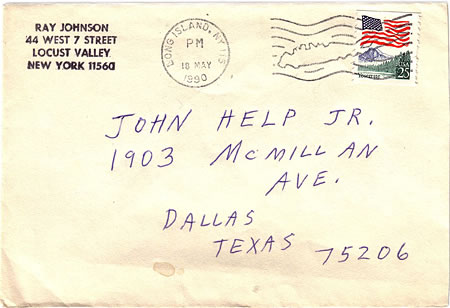 RAY JOHNSON
44 WEST 7 STREET
LOCUST VALLEY
NEW YORK 11560
LONG ISLAND, NY 115
PM
18 MAY
1990
25
USA
JOHN HELP JR.
1903 MCMILLAN
AVE.
DALLAS
TEXAS 75206